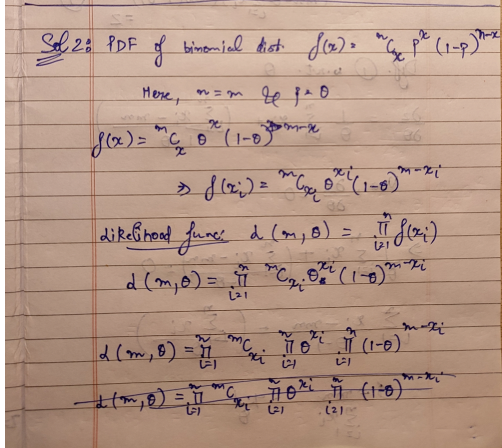 Sol 2: PDF of binomial dist f(x) = ⁿCₓ pˣ (1-p)ⁿ⁻ˣ
Here, n = m & p = θ
f(x) = ᵐCₓ θˣ (1-θ)ᵐ⁻ˣ
⇒ f(xᵢ) = ᵐC_{xᵢ} θ^{xᵢ} (1-θ)^{m-xᵢ}
Likelihood func: L(m, θ) = ∏_{i=1}^{n} f(xᵢ)
L(m, θ) = ∏_{i=1}^{n} ᵐC_{xᵢ} θ^{xᵢ} (1-θ)^{m-xᵢ}
L(m, θ) = ∏_{i=1}^{n} ᵐC_{xᵢ} ∏_{i=1}^{n} θ^{xᵢ} ∏_{i=1}^{n} (1-θ)^{m-xᵢ}
L(m, θ) = ∏_{i=1}^{n} ᵐC_{xᵢ} ∏_{i=1}^{n} θ^{xᵢ} ∏_{i=1}^{n} (1-θ)^{m-xᵢ}